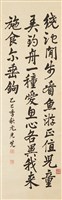 繞池閒步看魚游正值兒童
弄釣舟一種愛魚心各異我來
施食爾垂鉤